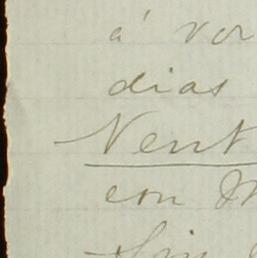 á ver
dias
Vent
con M